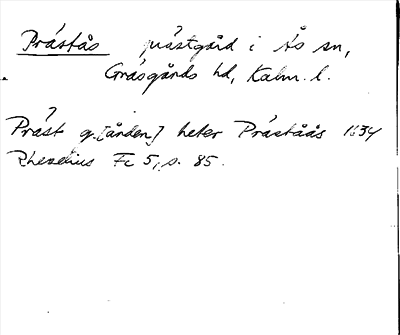 Prästås prästgård i Ås sn,
Gräsgårds hd, Kalm. l.
Präst g.[ården] heter Präståås 1634
Rhezelius Fc 5, s. 85.